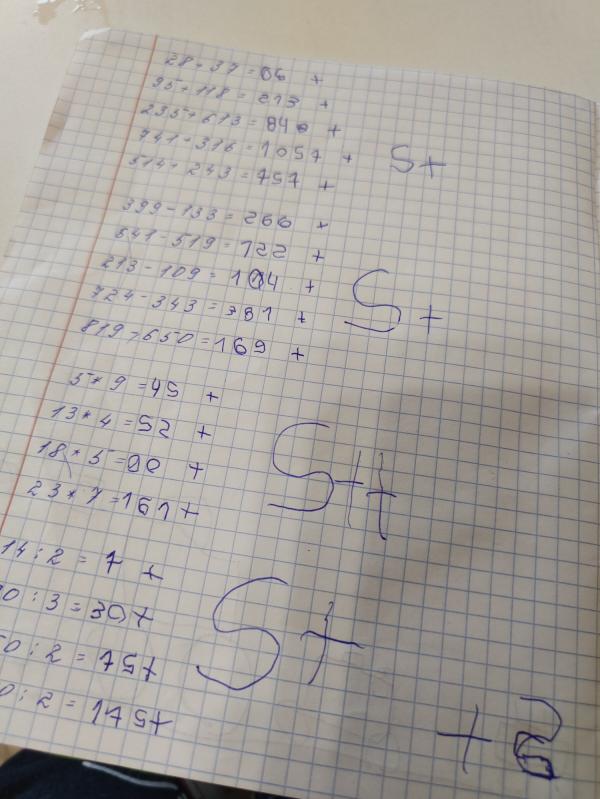 28+37=66 +
95+118=213 +
235+613=848 +
741+316=1057 +
514+243=757 +
5+
399-133=266 +
641-519=122 +
213-109=104 +
724-343=381 +
819-650=169 +
5+
5*9=45 +
13*4=52 +
18*5=90 +
23*7=161 +
5++
14:2=7 +
0:3=30+
50:2=75+
0:2=175+
5+
+2